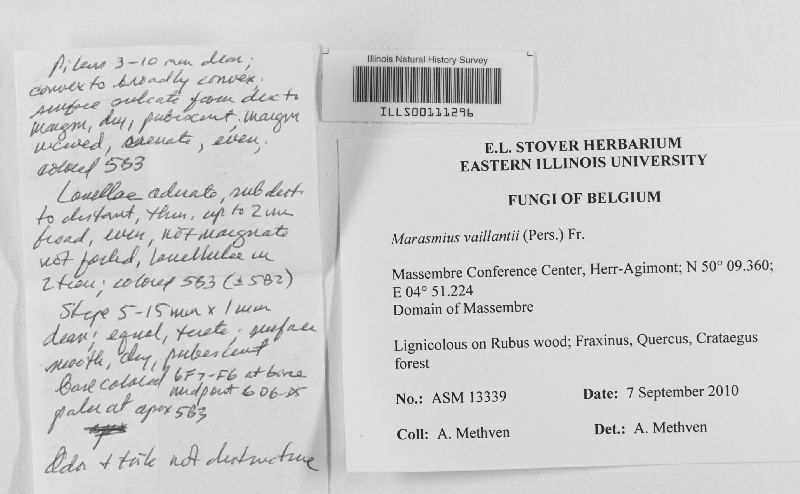 Pileus 3-10 mm diam;
convex to broadly convex;
surface sulcate from disc to
margin, dry, pubescent, margin
incurved, crenate, even,
colored 5B3
Lamellae adnate, subdist
to distant, thin, up to 2 mm
broad, even, not marginate
not forked, lamellulae in
2 tiers; colored 5B3 (±5B2)
Stipe 5-15 mm x 1 mm
diam; equal, terete; surface
smooth, dry, pubescent
base colored 6F7-F6 at base
midpoint 6D6-D5
paler at apex 5B3
Odor + taste not distinctive
Illinois Natural History Survey
ILLS00111296
E.L. STOVER HERBARIUM
EASTERN ILLINOIS UNIVERSITY
FUNGI OF BELGIUM
Marasmius vaillantii (Pers.) Fr.
Massembre Conference Center, Herr-Agimont; N 50° 09.360;
E 04° 51.224
Domain of Massembre
Lignicolous on Rubus wood; Fraxinus, Quercus, Crataegus
forest
No.: ASM 13339 Date: 7 September 2010
Coll: A. Methven Det.: A. Methven